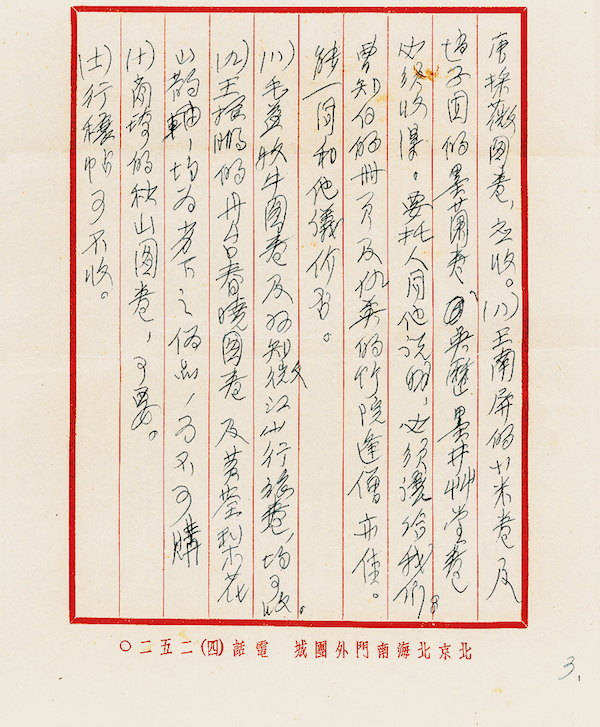 唐採薇图卷,应收。(七)王南屏的小米卷及
趙子固的墨蘭卷 吴歷墨井艸堂卷
必须收得。要托人同他说明,必须讓给我们。
曹知白的册页及仇英的竹院逢僧亦佳。
能一问和他議价否。
(八)毛益牧牛图卷及孙知微江山行旅卷,均可收。
(九)王振鹏的丹台春曉图卷 及黃筌梨花
山鹊軸,均为劣下之偽品,万不可購
(十)商琦的秋山图卷,可要。
(十一)行穰帖可不收。
北京北海南門外團城 電話(四)二五二〇
3.